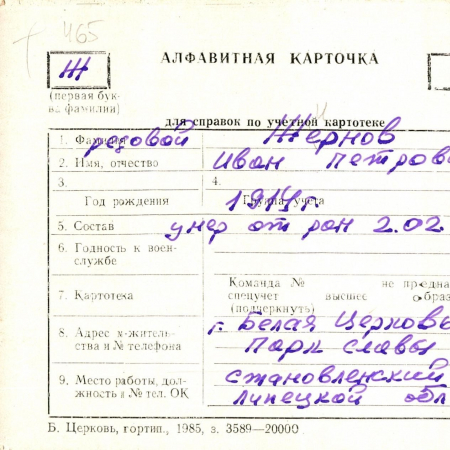 465
АЛФАВИТНАЯ КАРТОЧКА
Ж
(первая бук-
ва фамилии)
для справок по учетной картотеке
1. Фамилия рядовой Жернов
2. Имя, отчество Иван Петрови
3. 4.
Год рождения 1914 г. Группа учета
5. Состав умер от ран 2.02
6. Годность к воен-
службе
Команда № не предна
7. Картотека спецучет высшее образ
(подчеркнуть)
8. Адрес м-житель- г. Белая Церковь
ства и № телефона Парк славы
9. Место работы, дол- становленский
жность и № тел. ОК липецкой обл
Б. Церковь, гортип., 1985, з. 3589—20000